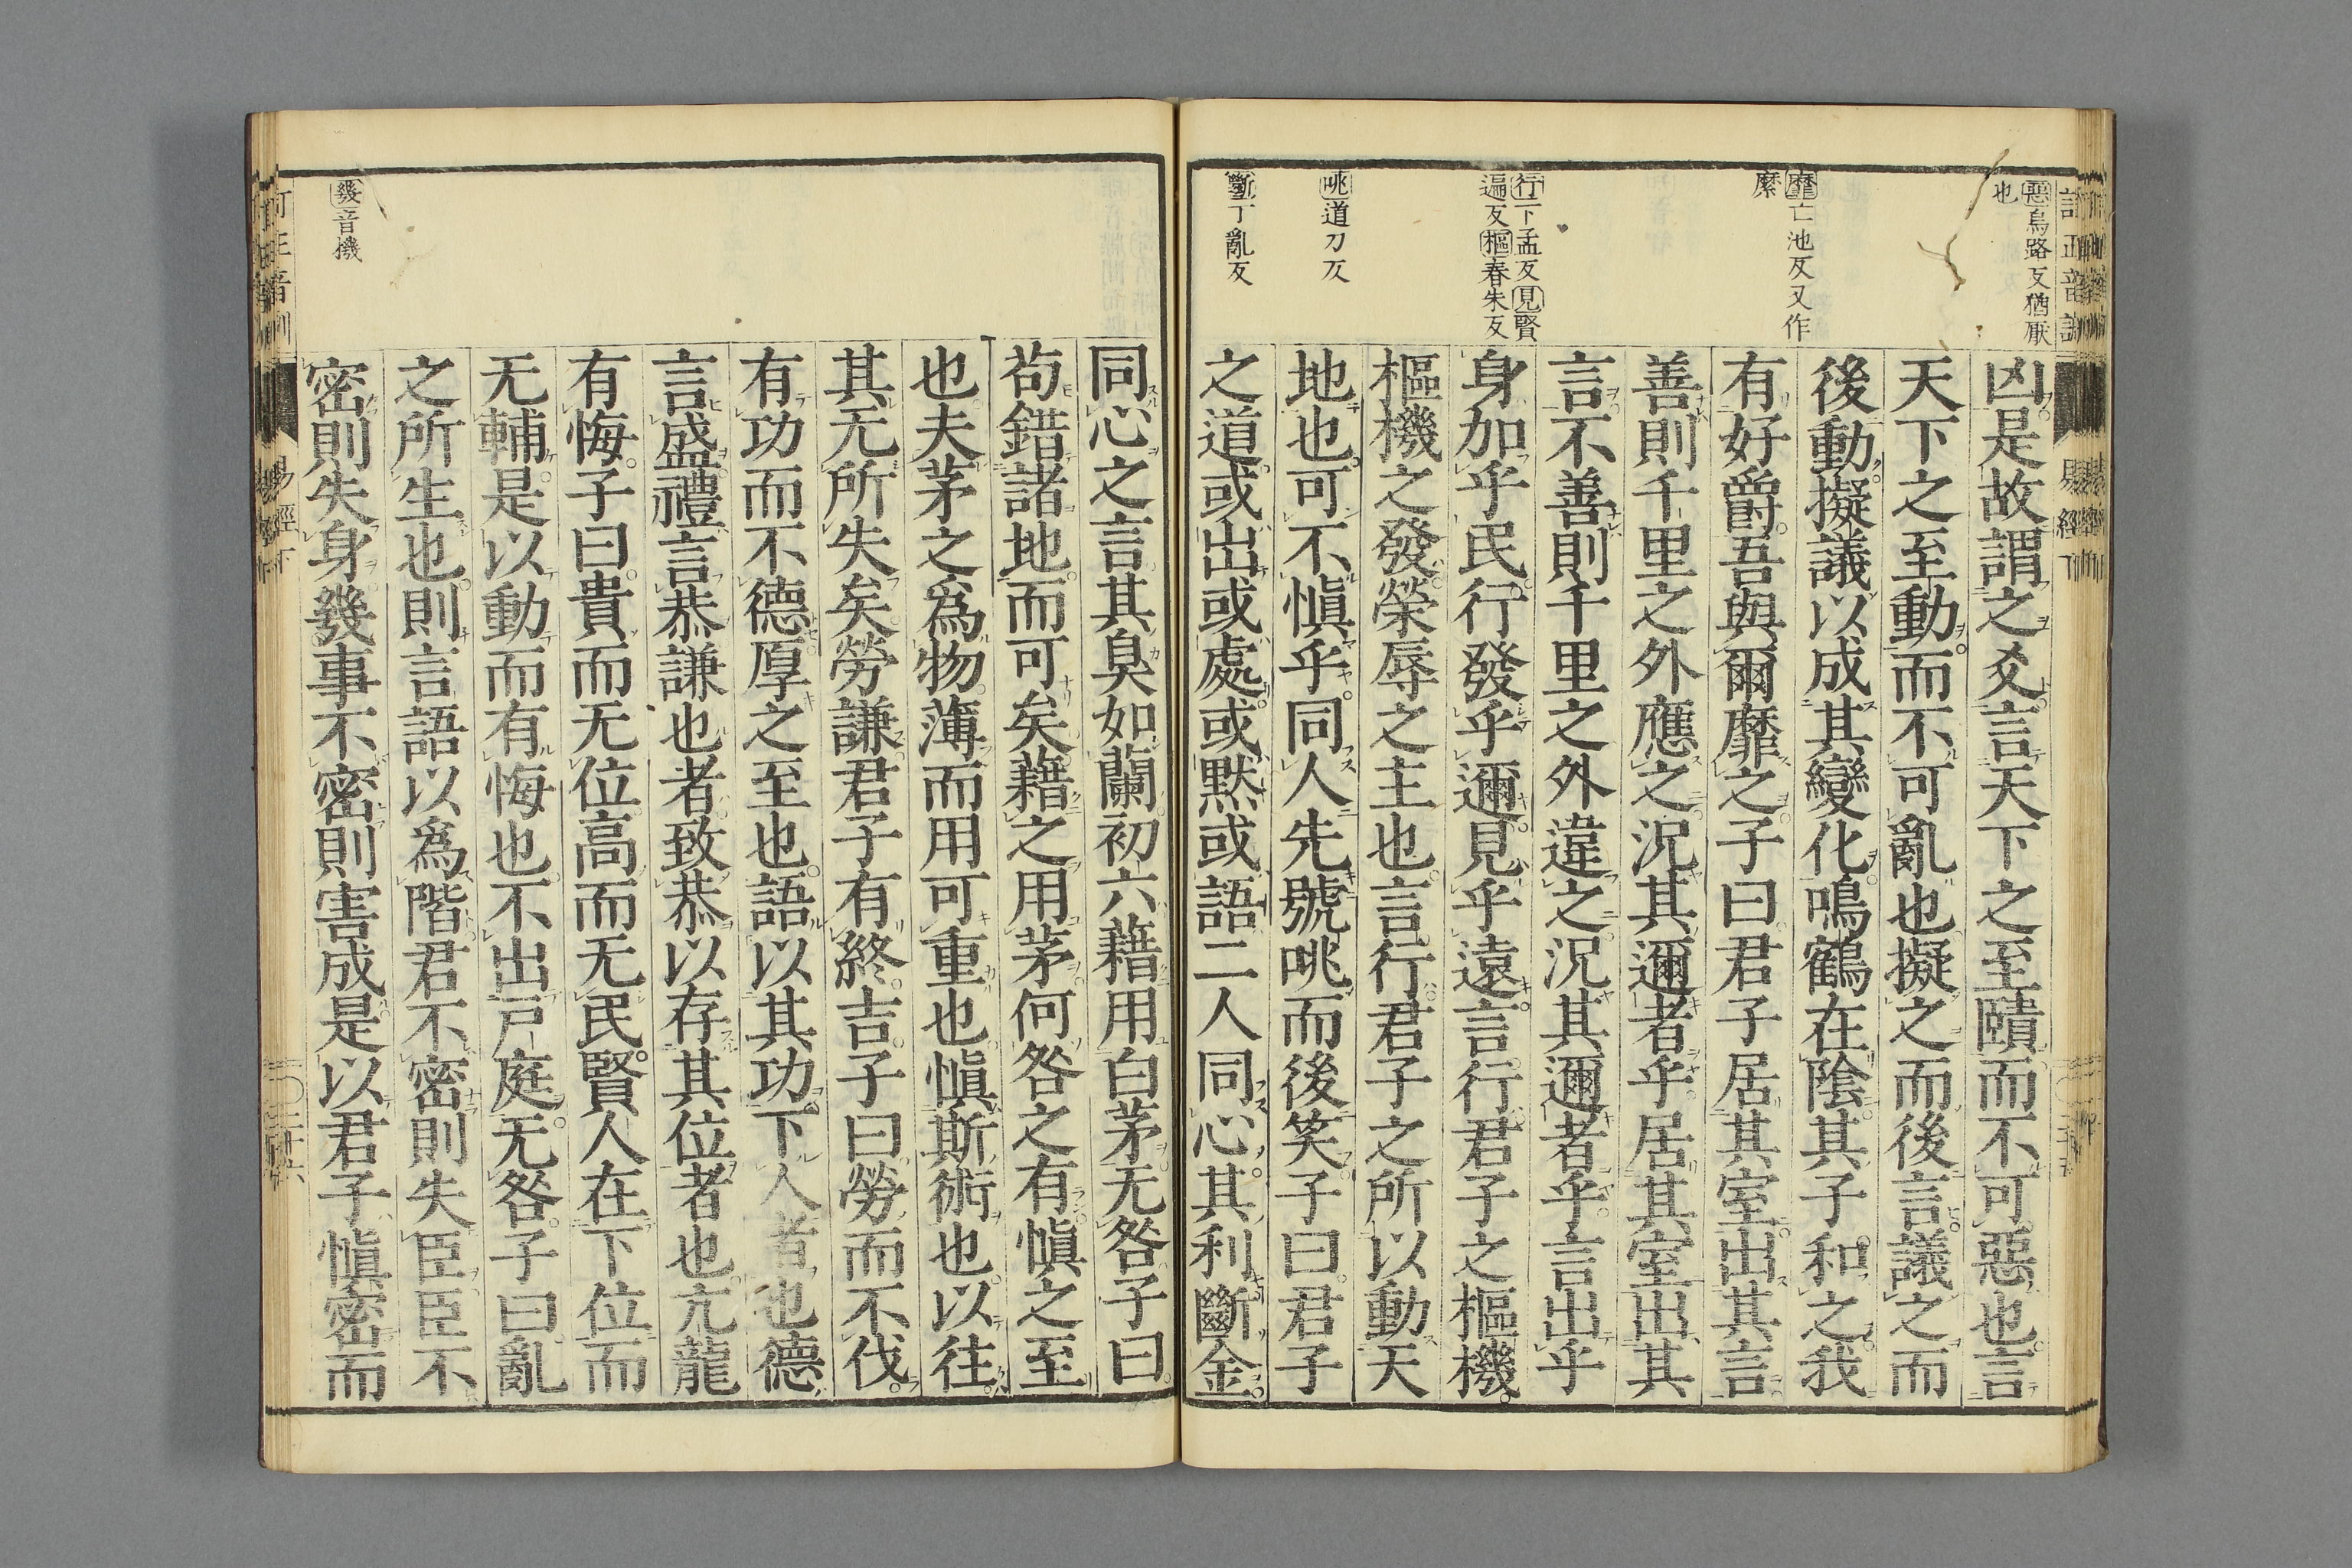 惡烏路反猶厭
也
靡亡池反又作
縻
行下孟反見賢
遍反樞春朱反
咷道刀反
斷丁亂反
凶是故謂之爻言天下之至賾而不可惡也言
天下之至動而不可亂也擬之而後言議之而
後動擬議以成其變化鳴鶴在陰其子和之我
有好爵吾與爾靡之子曰君子居其室出其言
善則千里之外應之況其邇者乎居其室出其
言不善則千里之外違之況其邇者乎言出乎
身加乎民行發乎邇見乎遠言行君子之樞機
樞機之發榮辱之主也言行君子之所以動天
地也可不愼乎同人先號咷而後笑子曰君子
之道或出或處或黙或語二人同心其利斷金
幾音機
同心之言其臭如蘭初六藉用白茅无咎子曰
苟錯諸地而可矣藉之用茅何咎之有愼之至
也夫茅之爲物薄而用可重也愼斯術也以往
其无所失矣勞謙君子有終吉子曰勞而不伐
有功而不德厚之至也語以其功下人者也德
言盛禮言恭謙也者致恭以存其位者也亢龍
有悔子曰貴而无位高而无民賢人在下位而
无輔是以動而有悔也不出戸庭无咎子曰亂
之所生也則言語以爲階君不密則失臣臣不
密則失身幾事不密則害成是以君子愼密而